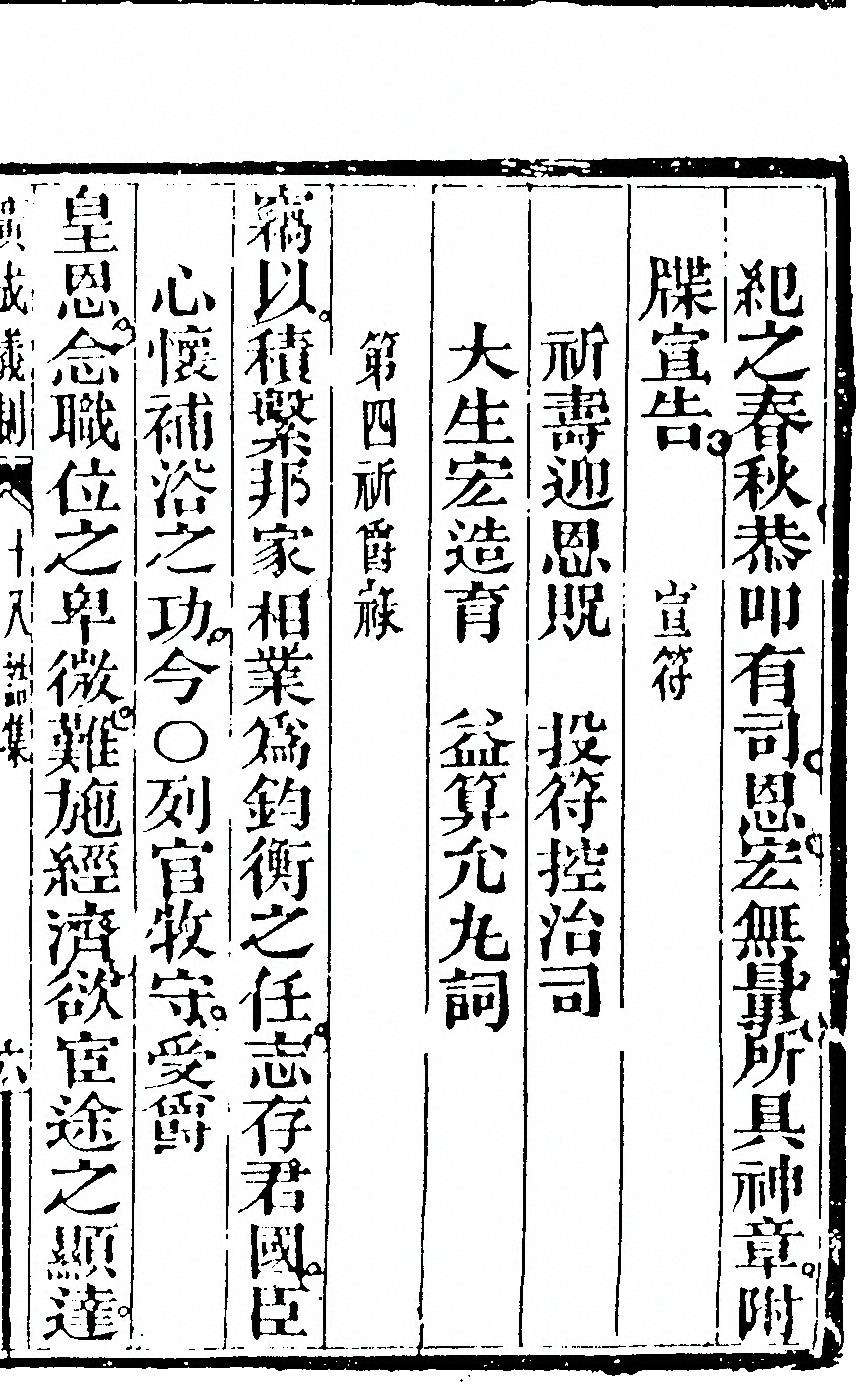 犯之春秋恭叩有司恩宏無量所具神章附
牒宣告　宣符
祈壽迎恩貺　投符控治司
大生宏造育　益算允九詞
第四祈爵祿
竊以積繫邦家相業為鈞衡之任志存君國臣
心懷補浴之功今〇列官牧守受爵
皇恩念職位之卑微難施經濟欲宦途之顯達
廣成儀制　十八誥集　六